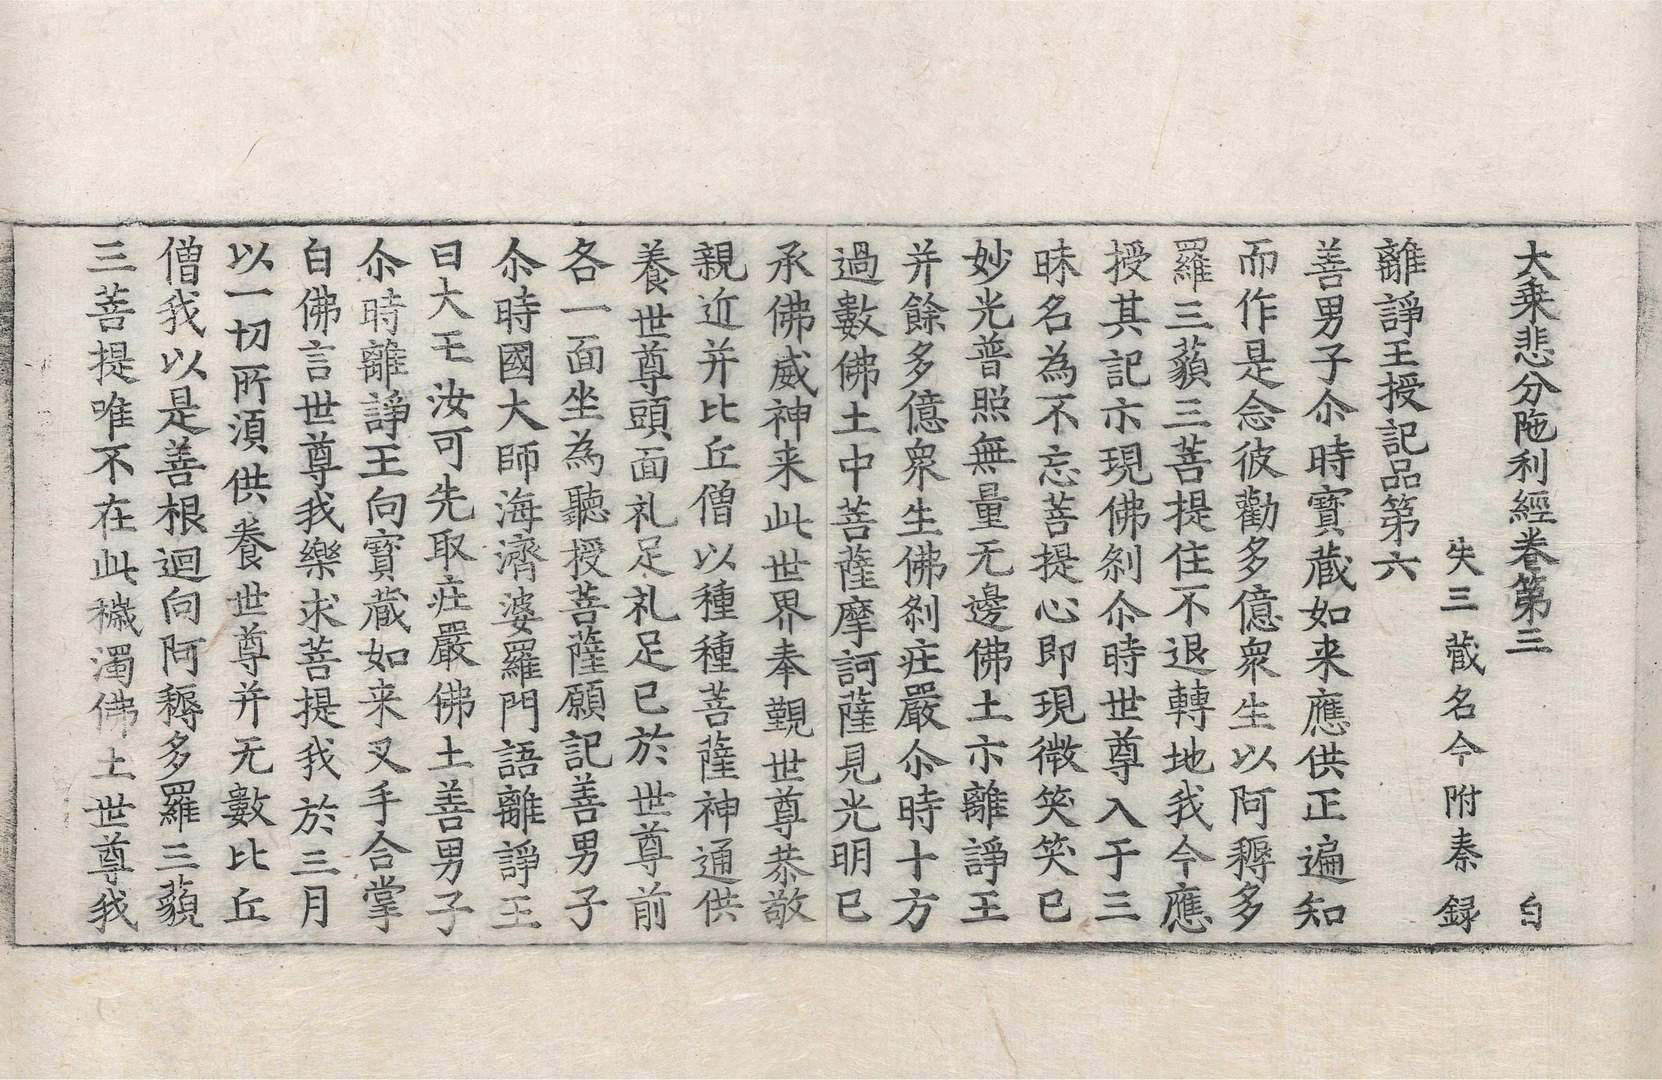 大乘悲分陁利經卷第三　白
失三藏名今附秦録
離諍王授記品第六
善男子尒時寶藏如来應供正遍知
而作是念彼勸多億衆生以阿耨多
羅三藐三菩提住不退轉地我今應
授其記亦現佛剎尒時世尊入于三
昧名為不忘菩提心即現微笑笑已
妙光普照無量无邊佛土亦離諍王
并餘多億衆生佛剎莊嚴尒時十方
過數佛土中菩薩摩訶薩見光明已
承佛威神来此世界奉觐世尊恭敬
親近并比丘僧以種種菩薩神通供
養世尊頭面礼足礼足已於世尊前
各一面坐為聽授菩薩願記善男子
尒時國大師海濟婆羅門語離諍王
曰大王汝可先取莊嚴佛土善男子
尒時離諍王向寶藏如来叉手合掌
白佛言世尊我樂求菩提我於三月
以一切所須供養世尊并无數比丘
僧我以是善根迴向阿耨多羅三藐
三菩提唯不在此穢濁佛土世尊我